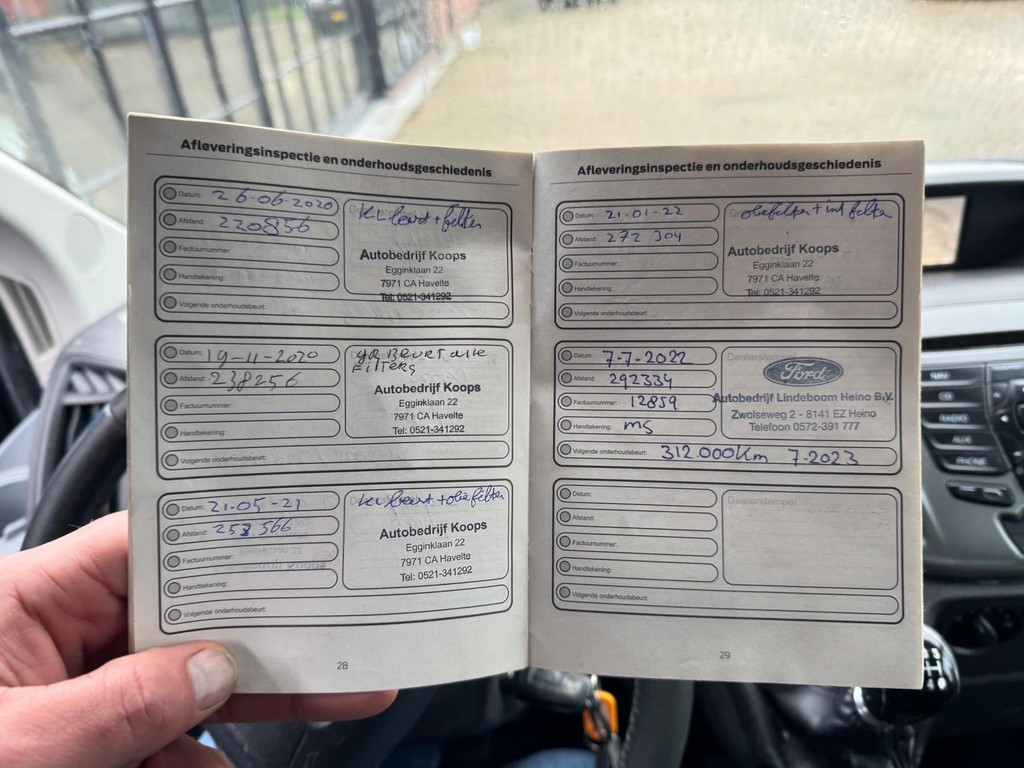 Afleveringsinspectie en onderhoudsgeschiedenis
Datum: 26-06-2020
Afstand: 220856
Factuurnummer:
Handtekening:
Volgende onderhoudsbeurt:
KL beurt + filter
Autobedrijf Koops
Egginklaan 22
7971 CA Havelte
Tel: 0521-341292
Datum: 19-11-2020
Afstand: 238256
Factuurnummer:
Handtekening:
Volgende onderhoudsbeurt:
GR BEURT alle
FILTERS
Autobedrijf Koops
Egginklaan 22
7971 CA Havelte
Tel: 0521-341292
Datum: 21-05-21
Afstand: 258.566
Factuurnummer:
Handtekening:
Volgende onderhoudsbeurt:
KL beurt + olie filter
Autobedrijf Koops
Egginklaan 22
7971 CA Havelte
Tel: 0521-341292
28
Afleveringsinspectie en onderhoudsgeschiedenis
Datum: 21-01-22
Afstand: 272 304
Factuurnummer:
Handtekening:
Volgende onderhoudsbeurt:
oliefilter + int filter
Autobedrijf Koops
Egginklaan 22
7971 CA Havelte
Tel: 0521-341292
Datum: 7-7-2022
Afstand: 292334
Factuurnummer: 12859
Handtekening: MS
Volgende onderhoudsbeurt: 312.000km 7-2023
Dealerstempel
Ford
Autobedrijf Lindeboom Heino B.V.
Zwolseweg 2 - 8141 EZ Heino
Telefoon 0572-391 777
Datum:
Afstand:
Factuurnummer:
Handtekening:
Volgende onderhoudsbeurt:
Dealerstempel
29
NAV
CD
RADIO
AUX
PHONE